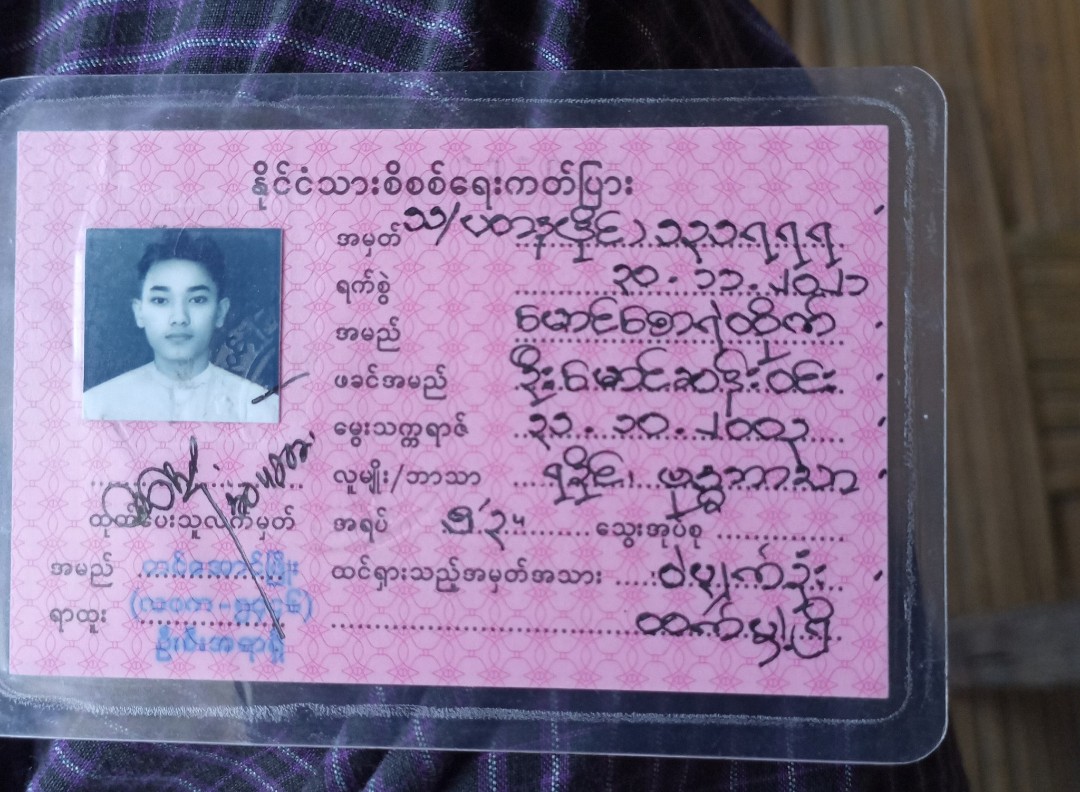 နိုင်ငံသားစိစစ်ရေးကတ်ပြား
အမှတ် သ/ပတန(နိုင်)၁၃၁၇၇၇
ရက်စွဲ ၃၀.၁၁.၂၀၂၁
အမည် မောင်စောရဲထိုက်
ဖခင်အမည် ဦးမောင်ဆန်းဝင်း
မွေးသက္ကရာဇ် ၃၁.၁၀.၂၀၀၃
လူမျိုး/ဘာသာ ရခိုင်၊ ဗုဒ္ဓဘာသာ
အရပ် ၅'၃" သွေးအုပ်စု
ထင်ရှားသည့်အမှတ်အသား ဝဲမျက်ခုံး
ထက်မှဲ့ရှိ
ထုတ်ပေးသူလက်မှတ်
အမည် တင်အောင်ဖြိုး
ရာထူး
ဦးစီးအရာရှိ